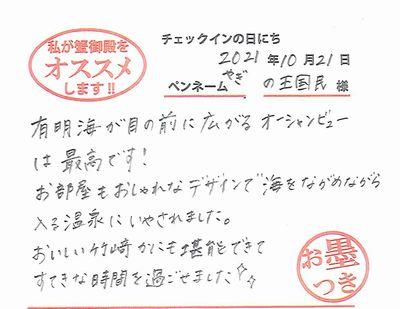 私が蟹御殿を
オススメ
します!!
チェックインの日にち
2021年10月21日
ペンネーム やぎの王国民 様
有明海が目の前に広がるオーシャンビュー
は最高です!
お部屋もおしゃれなデザインで海をながめながら
入る温泉にいやされました。
おいしい竹崎かにも堪能できて
すてきな時間を過ごせました✨
お墨
つき